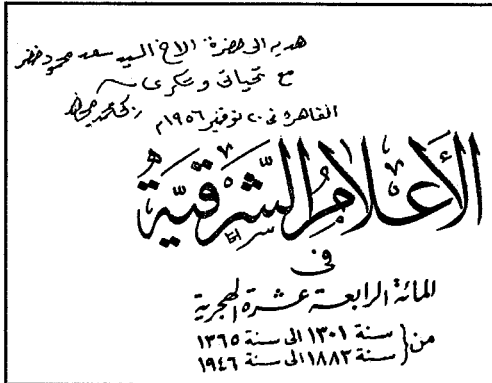 هديه الى حضرة الاخ السيد سعد محمود خضر
مع تحياتى وشكرى
القاهرة فى ٢٠ نوفمبر ١٩٥٦م زكى محمد مجاهد
الأعلام الشرقية
فى
المائة الرابعة عشرة الهجرية
من { سنة ١٣٠١ الى سنة ١٣٦٥
سنة ١٨٨٣ الى سنة ١٩٤٦